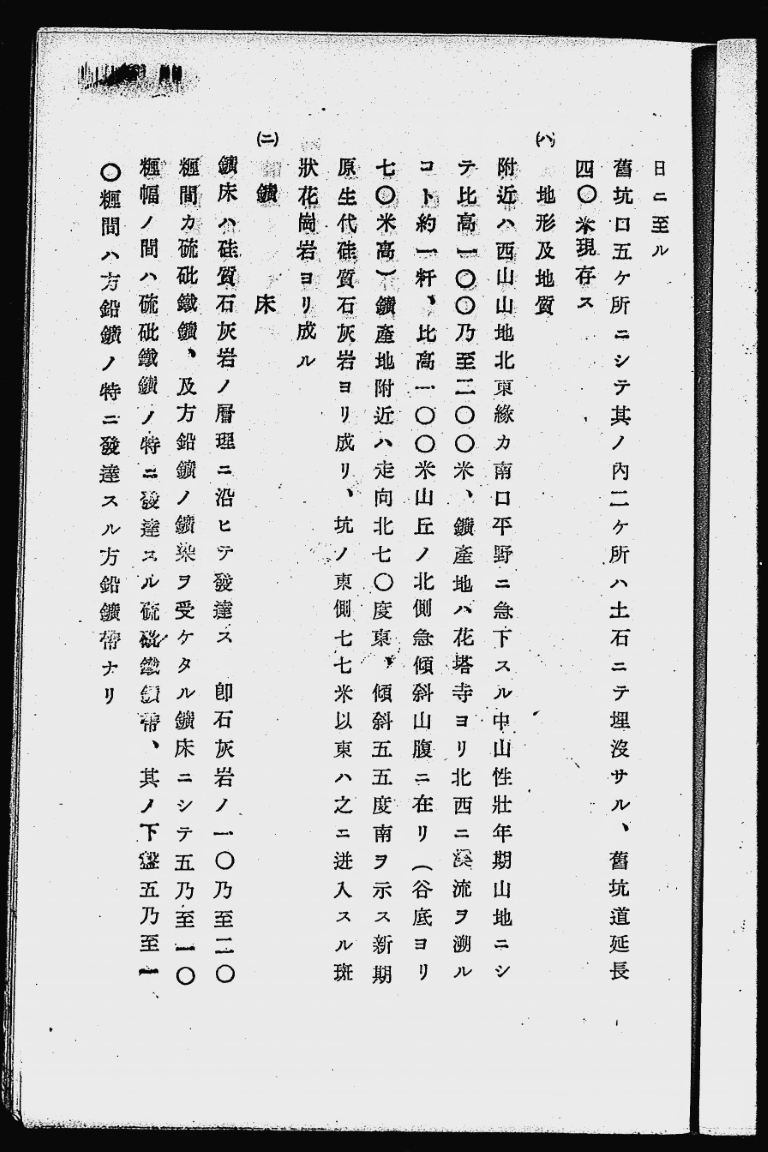 日ニ至ル
舊坑口五ケ所ニシテ其ノ內二ケ所ハ土石ニテ埋沒サル、舊坑道延長
四〇米現存ス
㈧ 地形及地質
附近ハ西山山地北東緣カ南口平野ニ急下スル中山性壯年期山地ニシ
テ比高一〇〇乃至二〇〇米、鑛產地ハ花塔寺ヨリ北西ニ溪流ヲ溯ル
コト約一粁、比高一〇〇米山丘ノ北側急傾斜山腹ニ在リ（谷底ヨリ
七〇米高）鑛產地附近ハ走向北七〇度東、傾斜五五度南ヲ示ス新期
原生代硅質石灰岩ヨリ成リ、坑ノ東側七七米以東ハ之ニ迸入スル斑
狀花崗岩ヨリ成ル
㈡ 鑛床
鑛床ハ硅質石灰岩ノ層理ニ沿ヒテ發達ス 卽石灰岩ノ一〇乃至二〇
糎間カ硫砒鐵鑛、及方鉛鑛ノ鑛染ヲ受ケタル鑛床ニシテ五乃至一〇
糎幅ノ間ハ硫砒鐵鑛ノ特ニ發達スル硫砒鐵鑛帶、其ノ下盤五乃至一
〇糎間ハ方鉛鑛ノ特ニ發達スル方鉛鑛帶ナリ